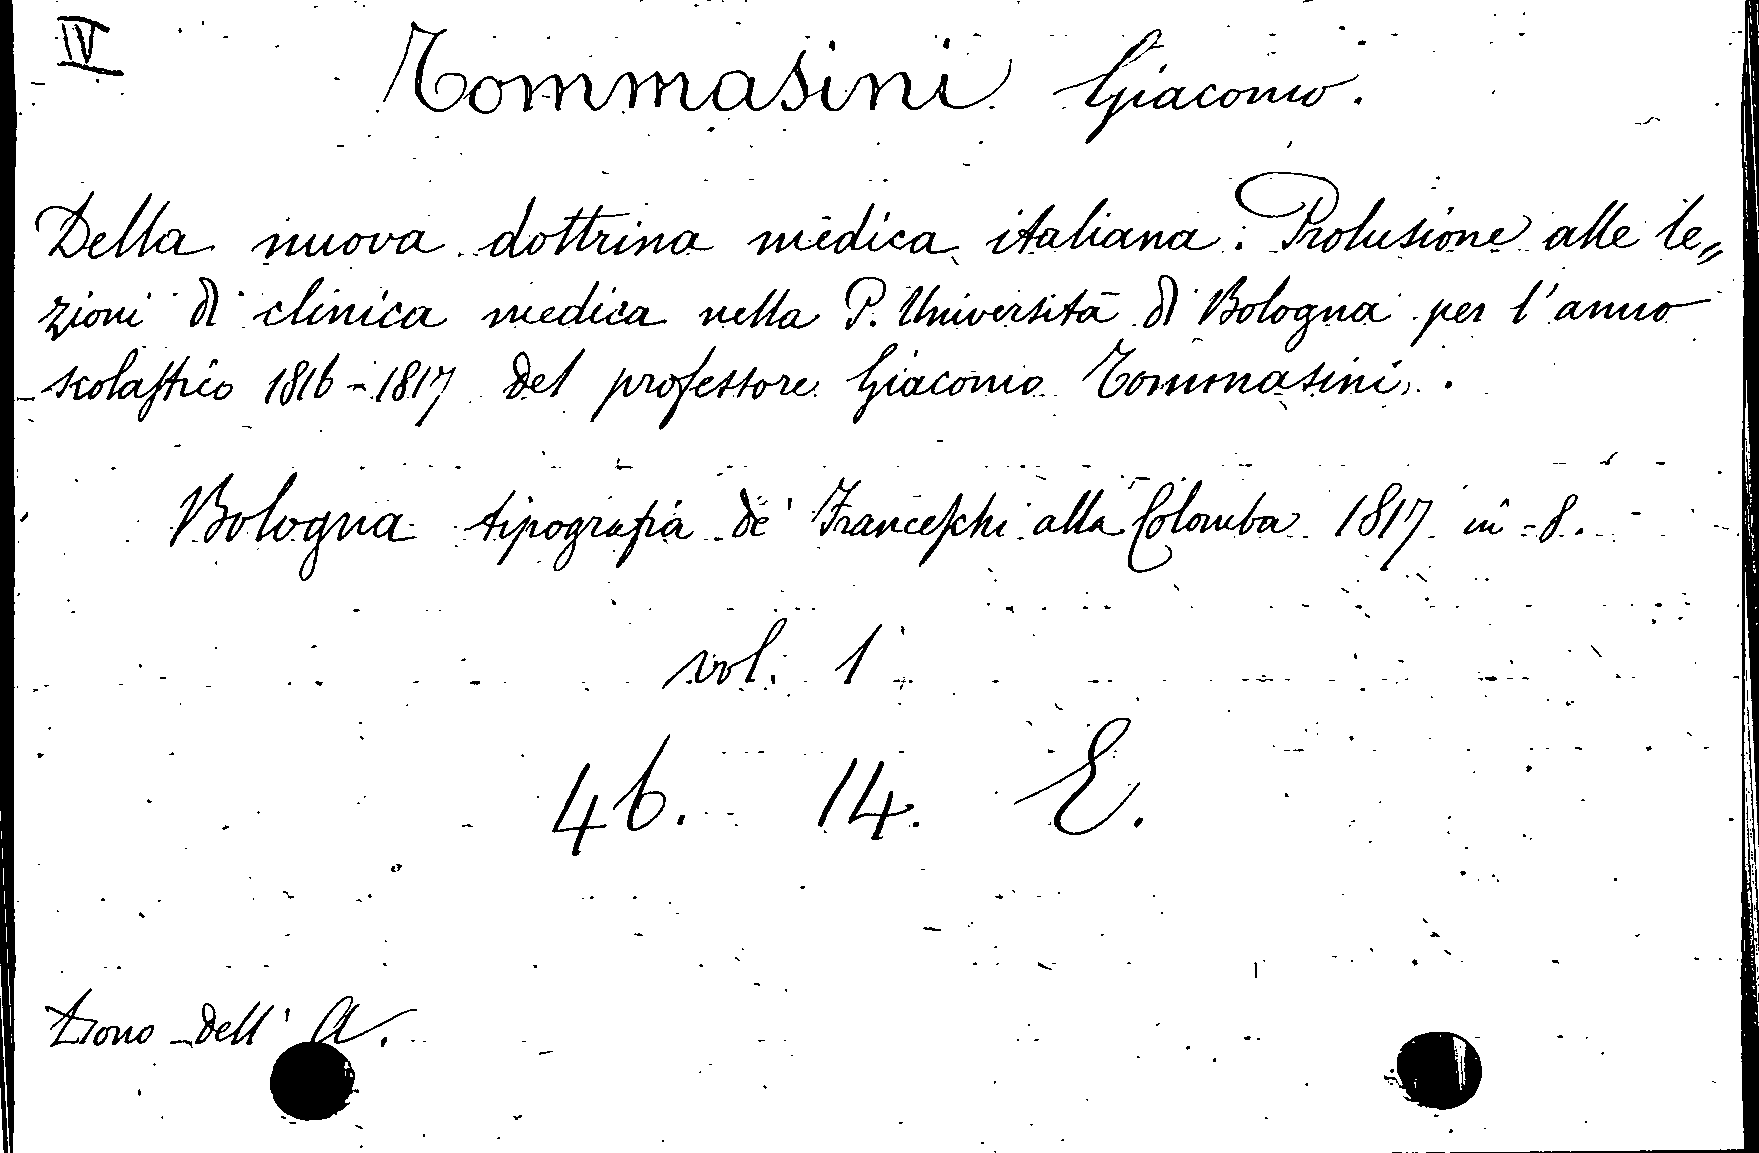 IV
Tommasini Giacomo.
Della nuova dottrina medica italiana. Prolusione alle le„
zioni di clinica medica nella P. Università di Bologna per l'anno
scolastico 1816-1817 del professore Giacomo Tommasini.
Bologna tipografia de' Franceschi alla Colomba 1817 in-8.
vol. 1
46. 14. E.
Dono dell' A.